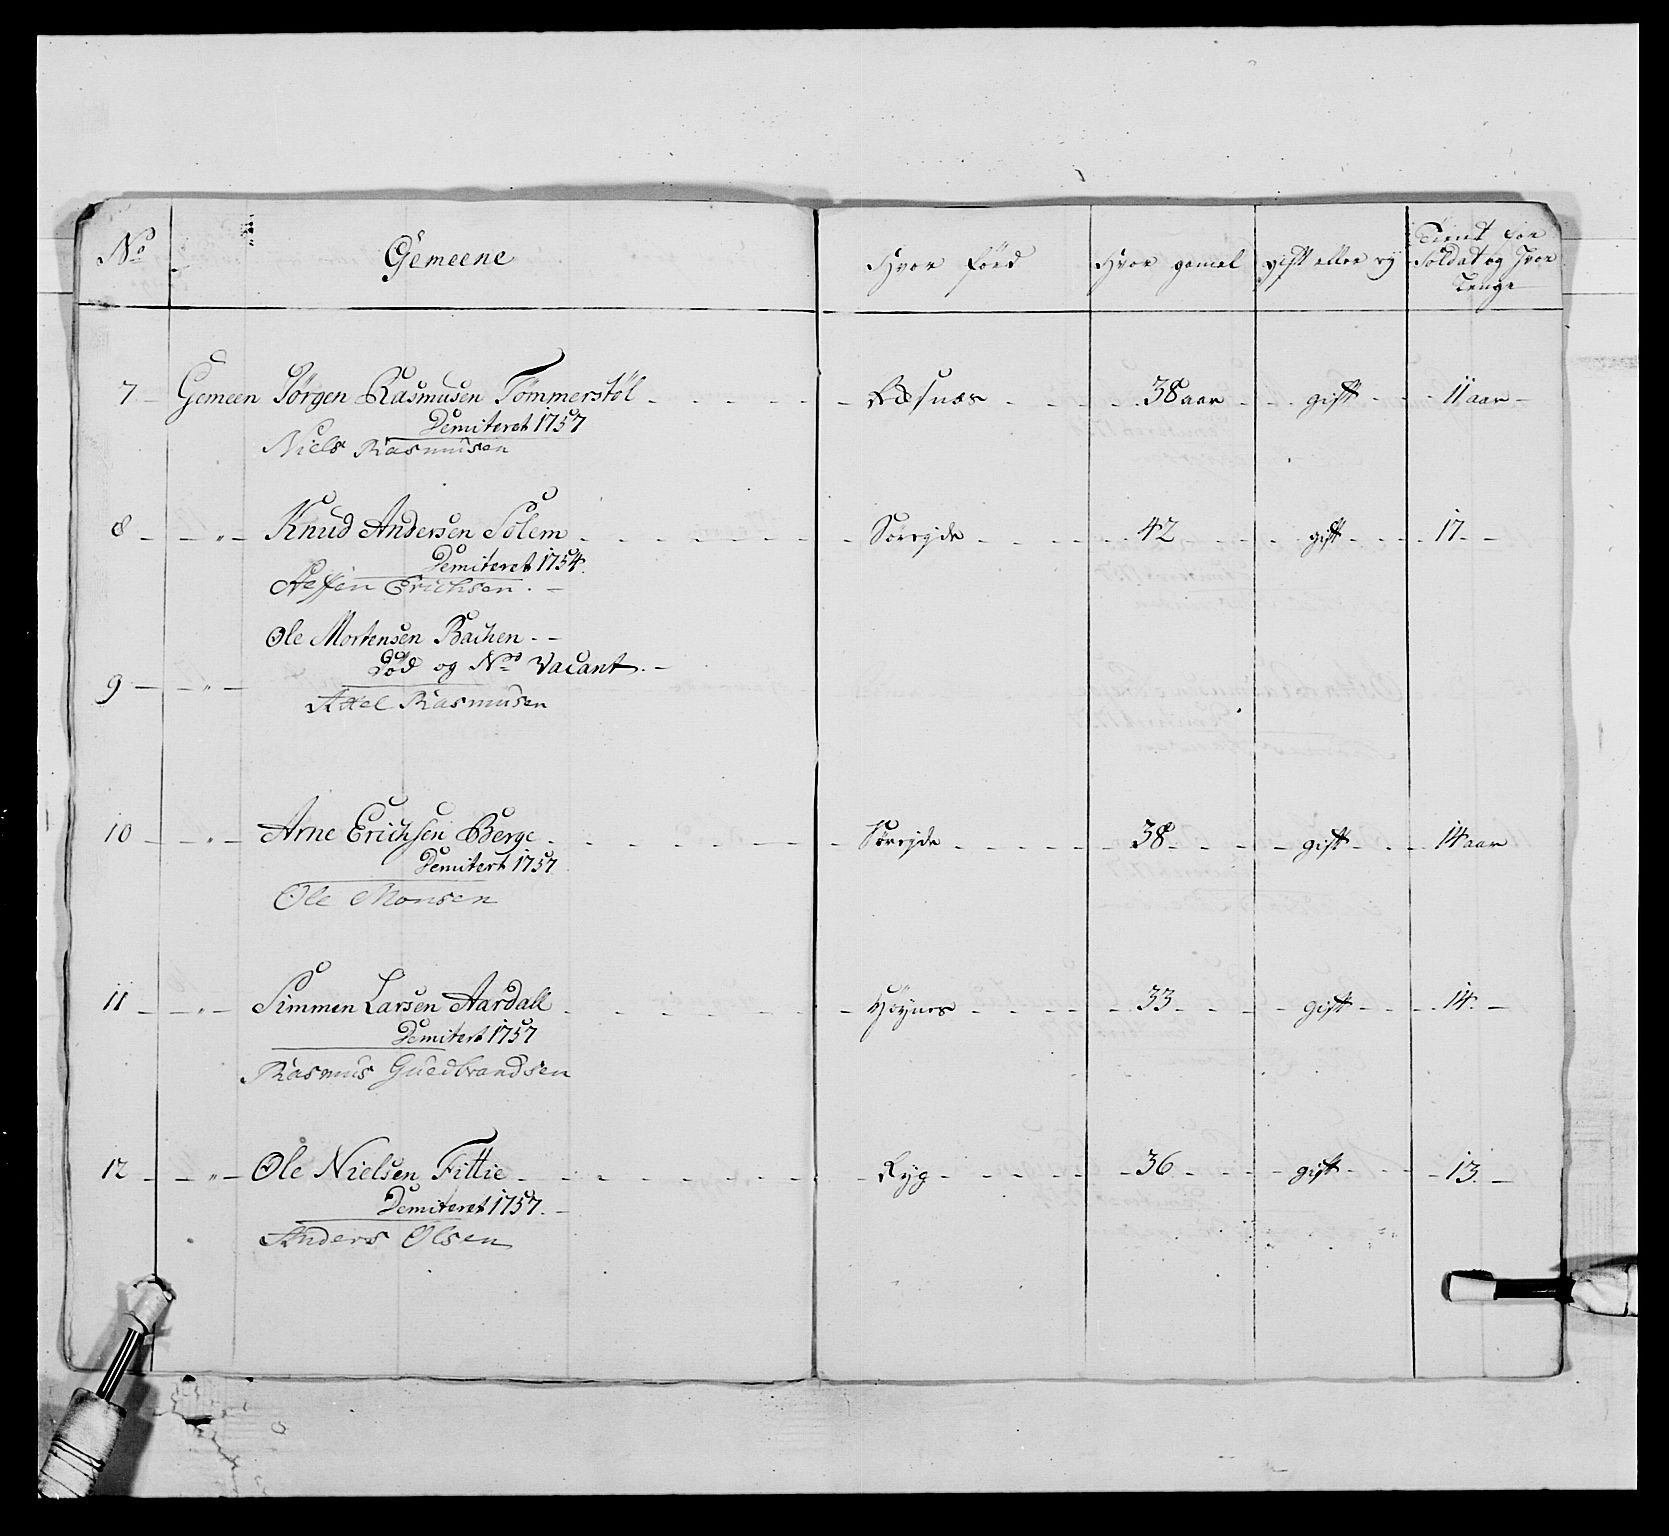 No
Gemeene
Hvor föed
Hvor gamel
gift eller ej
Tient for
Soldat og Hvor
Lenge
7 Gemeen Jörgen Rasmusen Tömmerstöl 38 aar gift 11 aar
Demiteret 1757
Niels Rasmusen
8 " Knud Andersen Solem 42 gift 17
Demiteret 1754.
Steffen Erichsen
Ole Mortensen Bachen
Död og No Vacant.
9 "
Axel Rasmusen
10 " Arne Erichsen Berge 38 gift 14 aar
Demitert 1757
Ole Monsen
11 " Simmen Larsen Aardall Höynes 33 gift 14.
Demitert 1757
Rasmus Guedbrandsen
12 " Ole Nielsen Fittie Ryg 36 gift 13.
Demiteret 1757.
Anders Olsen